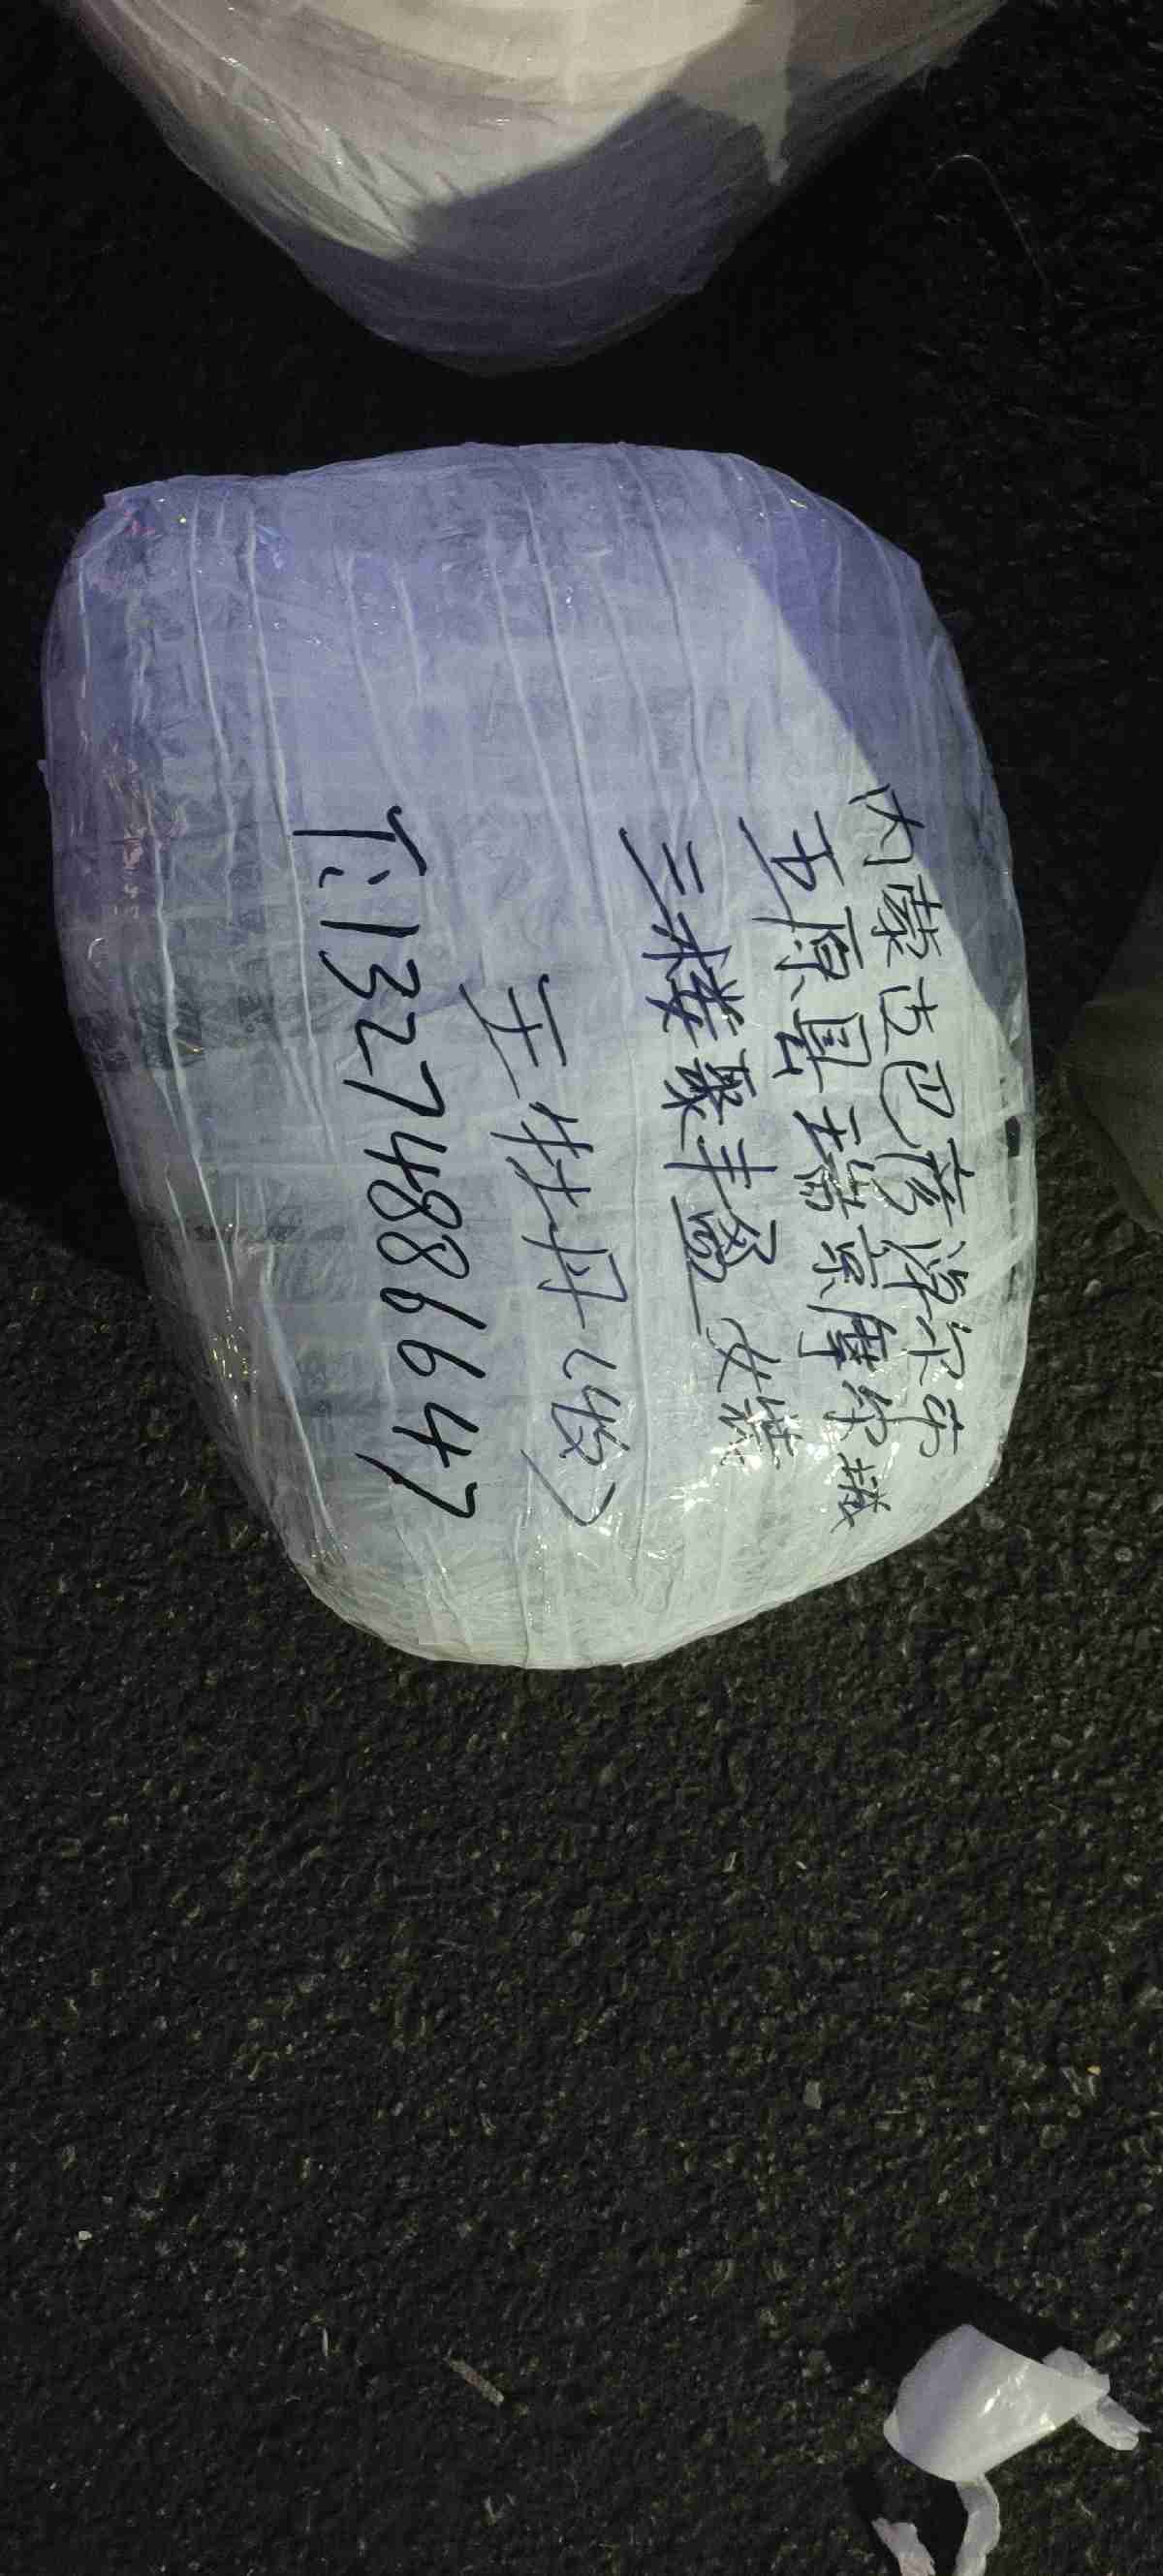 内蒙古巴彦淖尔市
五原县王瑞京摩尔城
三楼聚丰盈女装
王牡丹(收)
T:13274886647